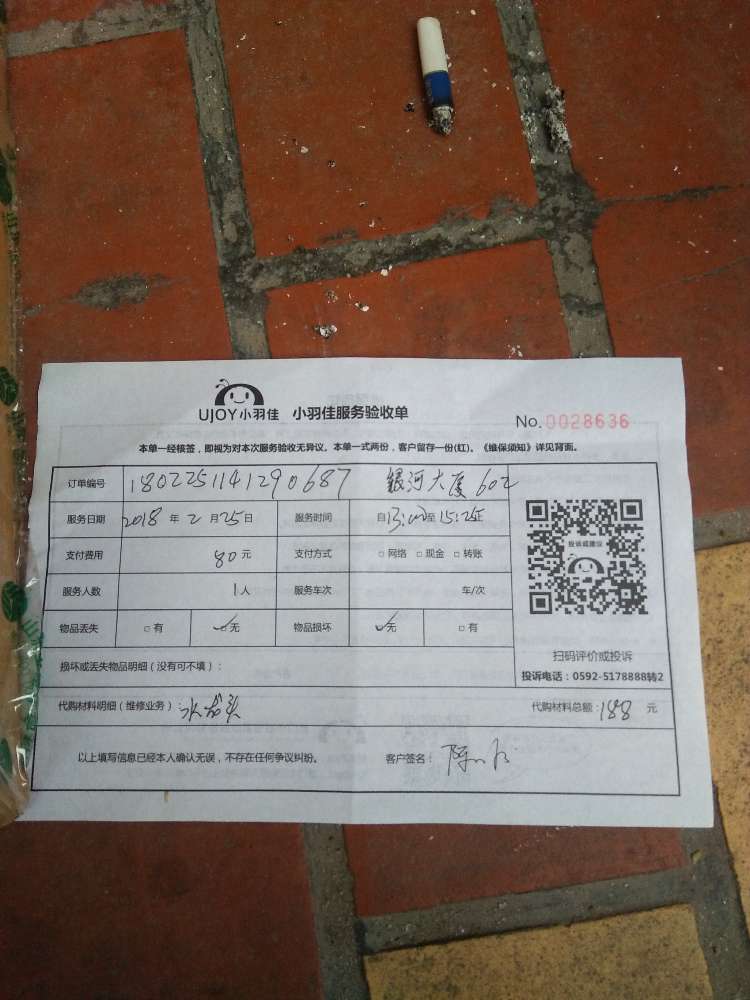 UJOY小羽佳 小羽佳服务验收单
No.0028636
本单一经核签，即视为对本次服务验收无异议。本单一式两份，客户留存一份(红)。《维保须知》详见背面。
订单编号 1802251141290687 银河大厦 602
服务日期 2018 年 2 月 25 日 服务时间 自13:00至15:25止
投诉或建议
支付费用 80 元 支付方式 □ 网络 □ 现金 □ 转账
服务人数 1 人 服务车次 车/次
物品丢失 □ 有 □ 无 物品损坏 □ 无 □ 有
扫码评价或投诉
损坏或丢失物品明细（没有可不填）:
投诉电话：0592-5178888转2
代购材料明细（维修业务）: 水龙头 代购材料总额: 188 元
以上填写信息已经本人确认无误，不存在任何争议纠纷。 客户签名: 陈